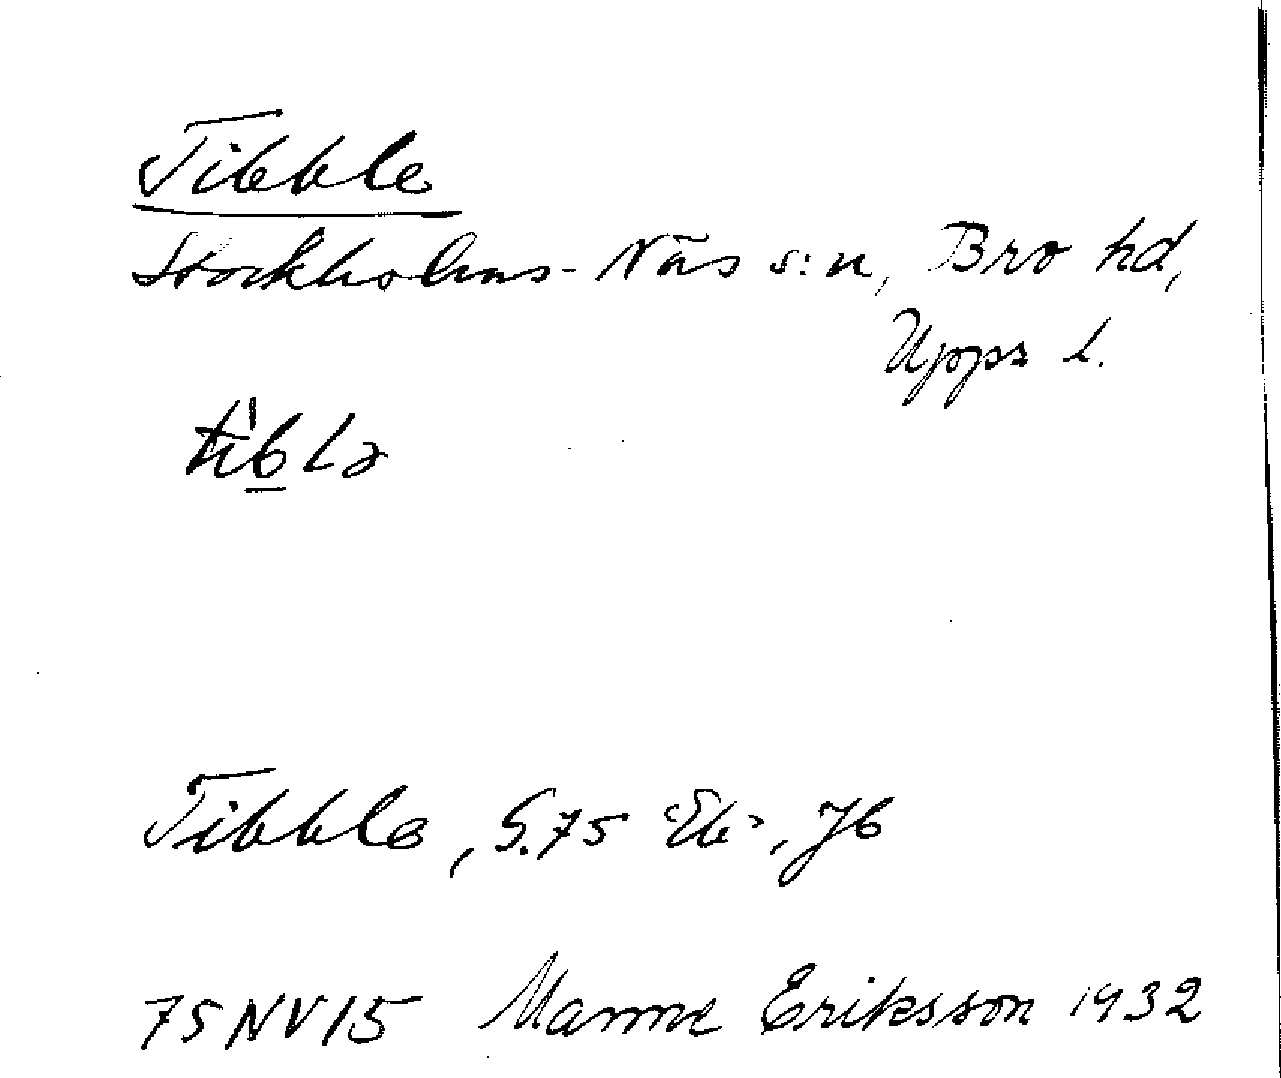 Tibble
Stockholms-Näs s:n, Bro hd,
Upps l.
ti̍b̲lə
Tibble, S.75 Ek., Jb
75NV15 Manne Eriksson 1932